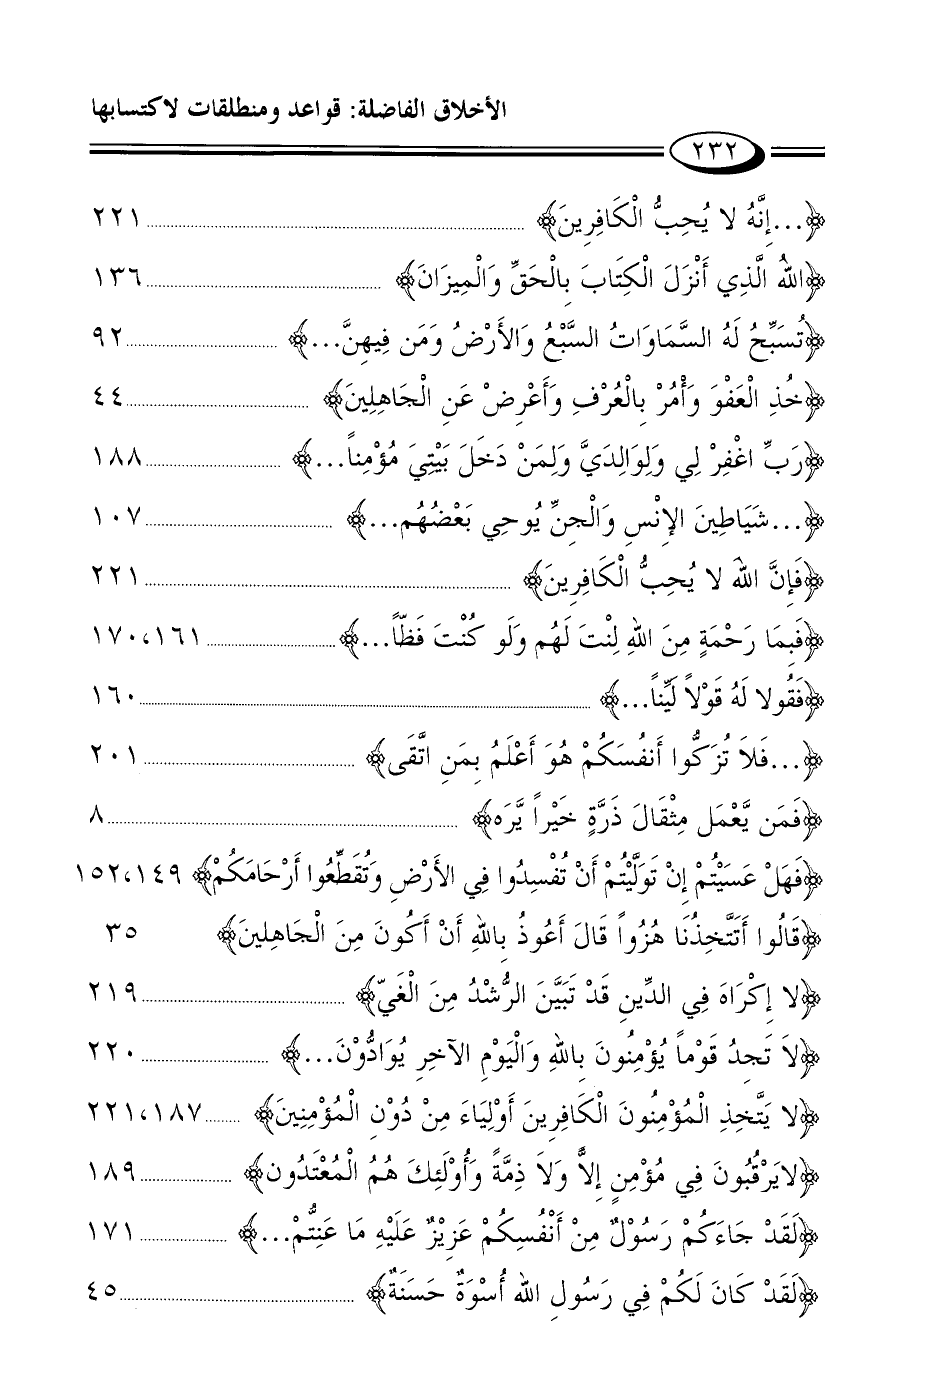 الأخلاق الفاضلة: قواعد ومنطلقات لاكتسابها
٢٣٢
﴿...إِنَّهُ لا يُحِبُّ الْكَافِرِينَ﴾ ٢٢١
﴿اللهُ الَّذِي أَنْزَلَ الْكِتَابَ بِالْحَقِّ وَالْمِيزَانَ﴾ ١٣٦
﴿تُسَبِّحُ لَهُ السَّمَاوَاتُ السَّبْعُ وَالأَرْضُ وَمَن فِيهِنَّ...﴾ ٩٢
﴿خُذِ الْعَفْوَ وَأْمُرْ بِالْعُرْفِ وَأَعْرِضْ عَنِ الْجَاهِلِينَ﴾ ٤٤
﴿رَبِّ اغْفِرْ لِي وَلِوَالِدَيَّ وَلِمَنْ دَخَلَ بَيْتِيَ مُؤْمِناً...﴾ ١٨٨
﴿...شَيَاطِينَ الإِنْسِ وَالْجِنِّ يُوحِي بَعْضُهُم...﴾ ١٠٧
﴿فَإِنَّ اللهَ لا يُحِبُّ الْكَافِرِينَ﴾ ٢٢١
﴿فَبِمَا رَحْمَةٍ مِنَ اللهِ لِنْتَ لَهُم وَلَو كُنْتَ فَظّاً...﴾ ١٦١، ١٧٠
﴿فَقُولا لَهُ قَوْلاً لَيِّناً...﴾ ١٦٠
﴿...فَلاَ تُزَكُّوا أَنفُسَكُمْ هُوَ أَعْلَمُ بِمَنِ اتَّقَى﴾ ٢٠١
﴿فَمَن يَّعْمَل مِثْقَالَ ذَرَّةٍ خَيْراً يَّرَه﴾ ٨
﴿فَهَلْ عَسَيْتُمْ إِنْ تَوَلَّيْتُمْ أَنْ تُفْسِدُوا فِي الأَرْضِ وَتُقَطِّعُوا أَرْحَامَكُمْ﴾ ١٤٩، ١٥٢
﴿قَالُوا أَتَتَّخِذُنَا هُزُواً قَالَ أَعُوذُ بِاللهِ أَنْ أَكُونَ مِنَ الْجَاهِلِينَ﴾ ٣٥
﴿لا إِكْرَاهَ فِي الدِّينِ قَدْ تَبَيَّنَ الرُّشْدُ مِنَ الْغَيِّ﴾ ٢١٩
﴿لاَ تَجِدُ قَوْماً يُؤْمِنُونَ بِاللهِ وَالْيَوْمِ الآخِرِ يُوَادُّوْنَ...﴾ ٢٢٠
﴿لا يَتَّخِذِ الْمُؤْمِنُونَ الْكَافِرِينَ أَوْلِيَاءَ مِنْ دُوْنِ الْمُؤْمِنِينَ﴾ ١٨٧، ٢٢١
﴿لايَرْقُبُونَ فِي مُؤْمِنٍ إِلاًّ وَلاَ ذِمَّةً وَأُوْلَئِكَ هُمُ الْمُعْتَدُون﴾ ١٨٩
﴿لَقَدْ جَاءَكُمْ رَسُوْلٌ مِنْ أَنْفُسِكُمْ عَزِيْزٌ عَلَيْهِ مَا عَنِتُّمْ...﴾ ١٧١
﴿لَقَدْ كَانَ لَكُمْ فِي رَسُولِ اللهِ أُسْوَةٌ حَسَنَةٌ﴾ ٤٥